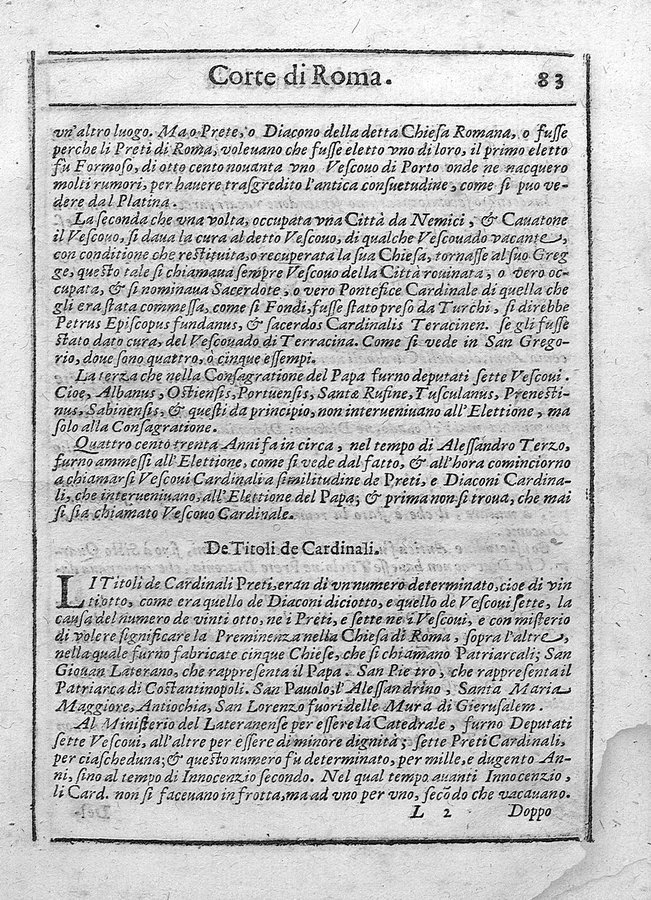 Corte di Roma. 83
vn'altro luogo. Ma o Prete, o Diacono della detta Chiesa Romana, o fusse
perche li Preti di Roma, voleuano che fusse eletto vno di loro, il primo eletto
fu Formoso, di otto cento nouanta vno Vescouo di Porto onde ne nacquero
molti rumori, per hauere trasgredito l'antica consuetudine, come si puo ve-
dere dal Platina.
La seconda che vna volta, occupata vna Città da Nemici, & Cauatone
il Vescouo, si daua la cura al detto Vescouo, di qualche Vescouado vacante,
con conditione che restituita, o recuperata la sua Chiesa, tornasse al suo Greg
ge, questo tale si chiamaua sempre Vescouo della Città rouinata, o vero oc-
cupata, & si nominaua Sacerdote, o vero Pontefice Cardinale di quella che
gli era stata commessa, come si Fondi, fusse stato preso da Turchi, si direbbe
Petrus Episcopus fundanus, & sacerdos Cardinalis Teracinen. se gli fusse
stato dato cura, del Vescouado di Terracina. Come si vede in San Grego-
rio, doue sono quattro, ò cinque essempi.
La terza che nella Consagratione del Papa furno deputati sette Vescoui.
Cioe, Albanus, Ostiensis, Portuensis, Santæ Rufine, Tusculanus, Prenesti-
nus, Sabinensis, & questi da principio, non interueniuano all'Elettione, ma
solo alla Consagratione.
Quattro cento trenta Anni fa in circa, nel tempo di Alessandro Terzo,
furno ammessi all'Elettione, come si vede dal fatto, & all'hora cominciorno
a chiamarsi Vescoui Cardinali a similitudine de Preti, e Diaconi Cardina-
li, che interueniuano, all'Elettione del Papa; & prima non si troua, che mai
si sia chiamato Vescouo Cardinale.
De Titoli de Cardinali.
LI Titoli de Cardinali Preti, eran di vn numero determinato, cioe di vin
tiotto, come era quello de Diaconi diciotto, e quello de Vescoui sette, la
causa del numero de vinti otto, ne i Preti, e sette ne i Vescoui, e con misterio
di volere significare la Preminenza nella Chiesa di Roma, sopra l'altre,
nella quale furno fabricate cinque Chiese, che si chiamano Patriarcali; San
Giouan Laterano, che rappresenta il Papa. San Pietro, che rappresenta il
Patriarca di Costantinopoli. San Pauolo, l'Alessandrino, Santa Maria
Maggiore, Antiochia, San Lorenzo fuori delle Mura di Gierusalem.
Al Ministerio del Lateranense per essere la Catedrale, furno Deputati
sette Vescoui, all'altre per essere di minore dignità; sette Preti Cardinali,
per ciascheduna; & questo numero fu determinato, per mille, e dugento An-
ni, sino al tempo di Innocenzio secondo. Nel qual tempo auanti Innocenzio,
li Card. non si faceuano in frotta, ma ad vno per vno, secõdo che vacauano.
L 2 Doppo